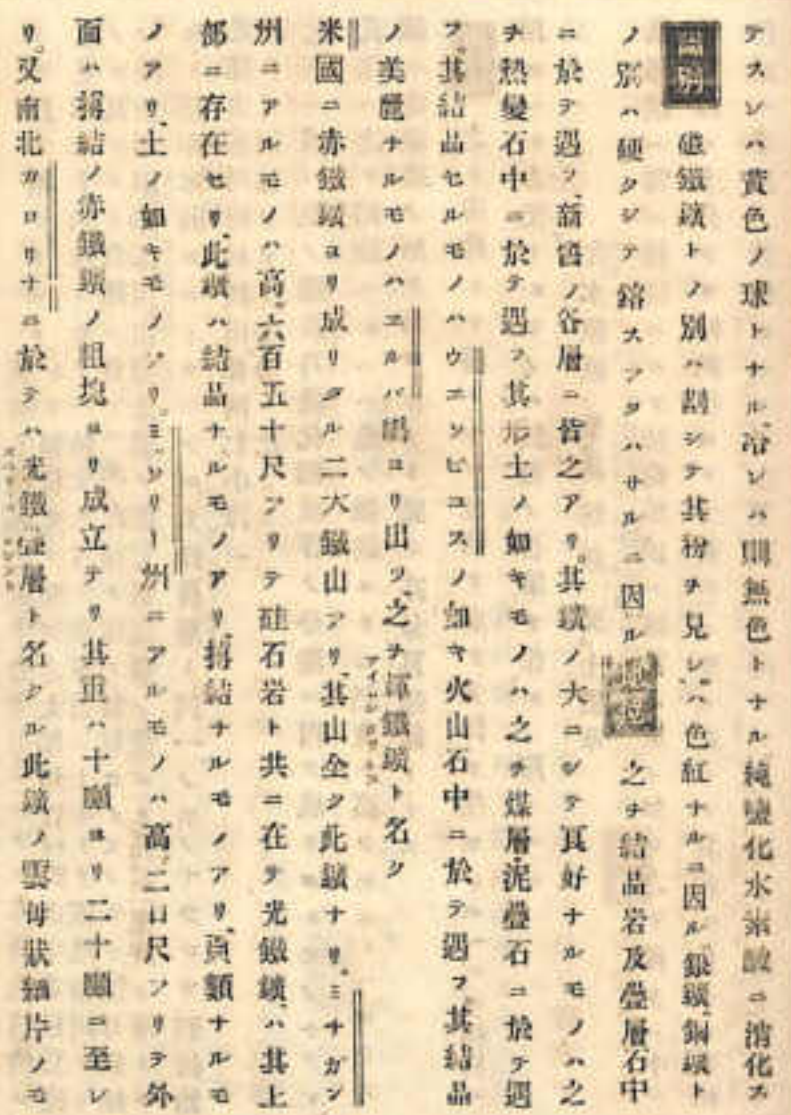 テスンハ黃色ノ球トナル、冷レハ則無色トナル純鹽化水素酸ニ消化ス
磁鐵鑛トノ別ハ劃シテ其粉ヲ見レハ色紅ナルニ因ル、銀鑛、銅鑛ト
ノ別ハ硬クシテ鎔スアタハサルニ因ル 之ヲ結晶岩及疊層石中
ニ於テ遇フ、新舊ノ各層ニ皆之アリ。其鑛ノ大ニシテ良好ナルモノハ之
ヲ熱變石中ニ於テ遇フ、其形土ノ如キモノハ之ヲ煤層泥疊石ニ於テ遇
フ。其結晶セルモノハウエソビユスノ如キ火山石中ニ於テ遇フ、其結晶
ノ美麗ナルモノハエルバ嶋ヨリ出ツ、之ヲ輝鐵鑛ト名ク
米國ニ赤鐵鑛ヨリ成リタル二大鐵山アリ、其山全ク此鑛ナリ。ミチガン
州ニアルモノハ高。六百五十尺アリテ硅石岩ト共ニ在テ光鐵鑛ハ其上
部ニ存在セリ、此鑛ハ結晶ナルモノアリ、搏結ナルモノアリ、頁類ナルモ
ノアリ、土ノ如キモノアリ。ミソリー州ニアルモノハ高。二百尺アリテ外
面ハ搏結ノ赤鐵鑛ノ粗塊ヨリ成立テリ其重ハ十噸ヨリ二十噸ニ至レ
リ。又南北カロリナニ於テハ光鐵疊層ト名クル此鑛ノ雲母狀細片ノモ